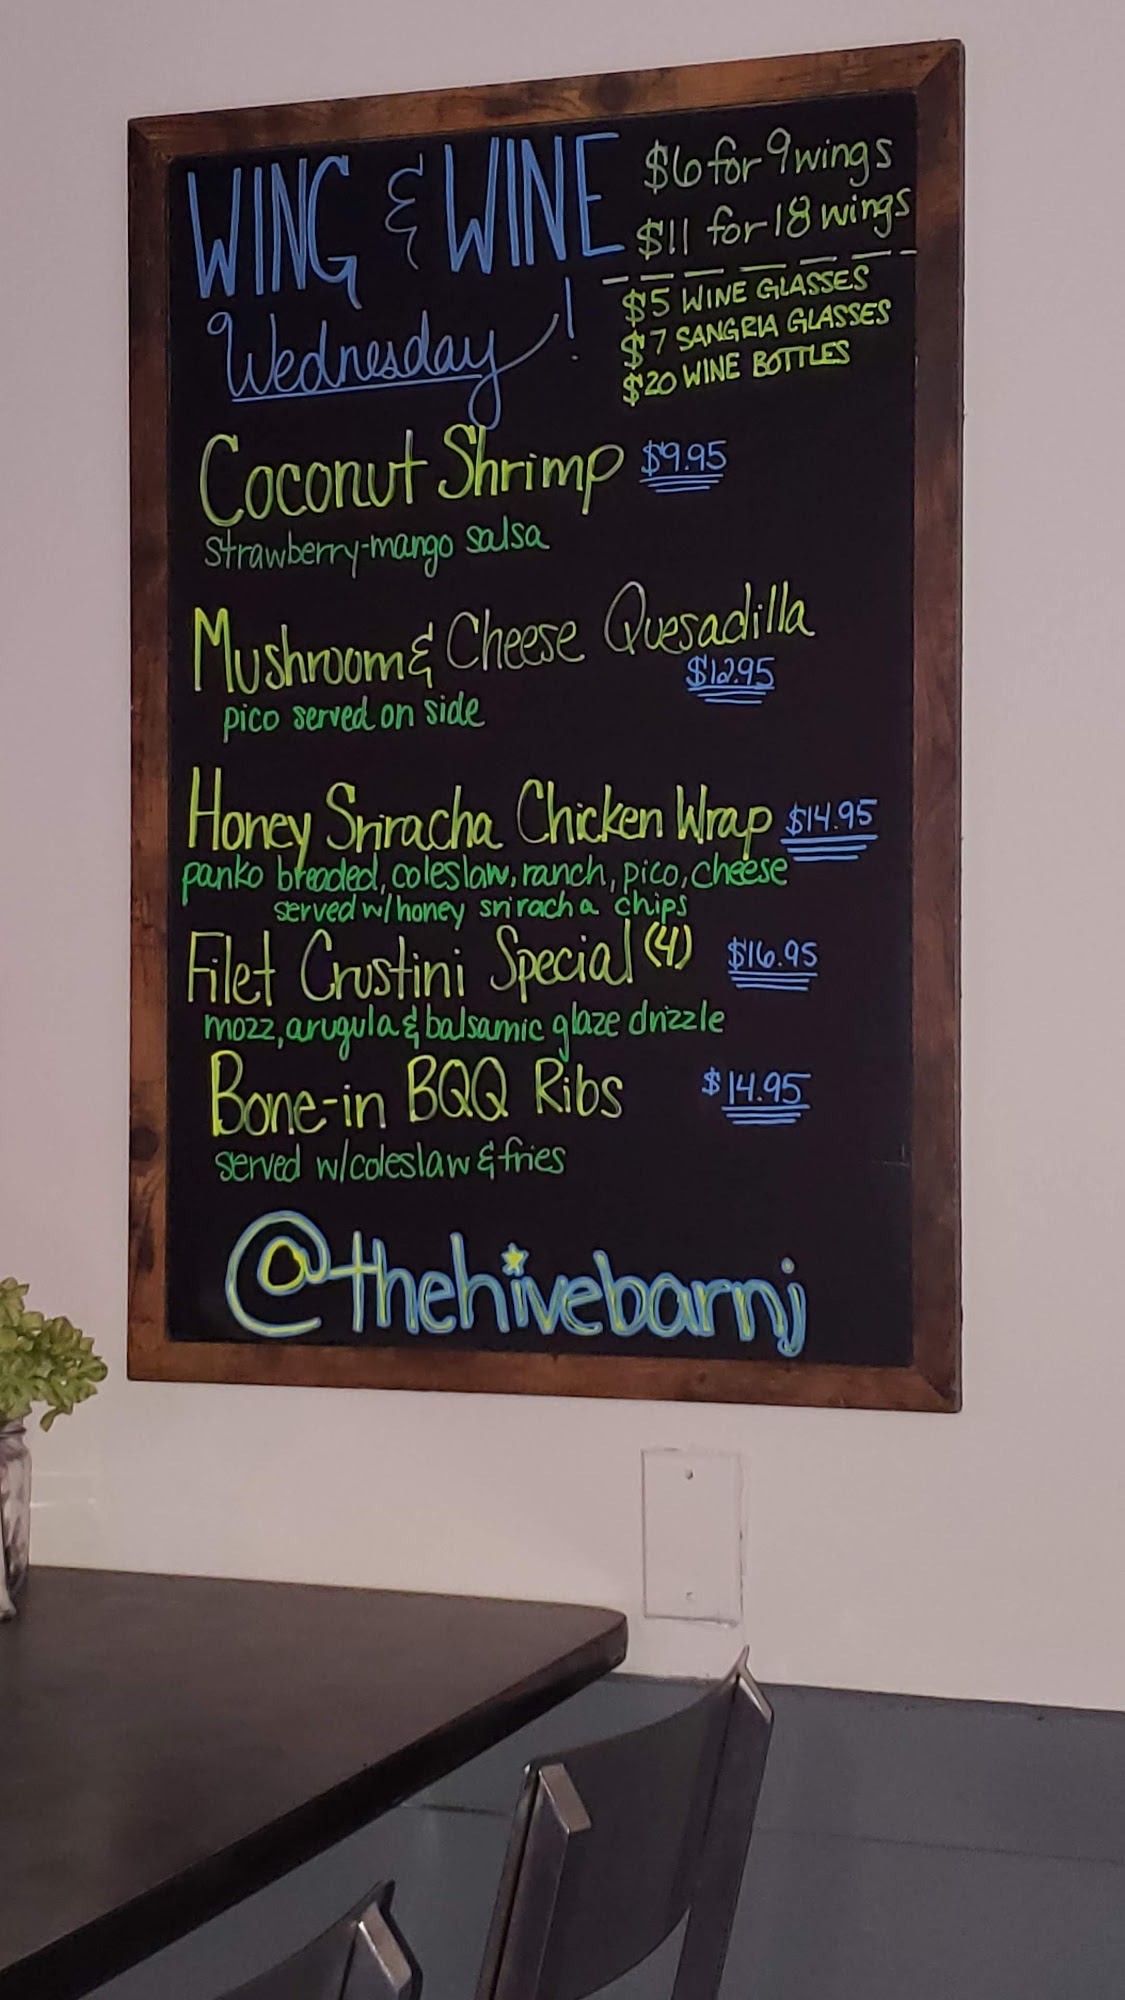 WING & WINE
Wednesday!
$6 for 9 wings
$11 for 18 wings
$5 WINE GLASSES
$7 SANGRIA GLASSES
$20 WINE BOTTLES
Coconut Shrimp $9.95
strawberry-mango salsa
Mushroom & Cheese Quesadilla
$12.95
pico served on side
Honey Sriracha Chicken Wrap $14.95
panko breaded, coleslaw, ranch, pico, cheese
served w/honey sriracha chips
Filet Crustini Special (4) $16.95
mozz, arugula & balsamic glaze drizzle
Bone-in BQQ Ribs $14.95
served w/coleslaw & fries
@thehivebarnj